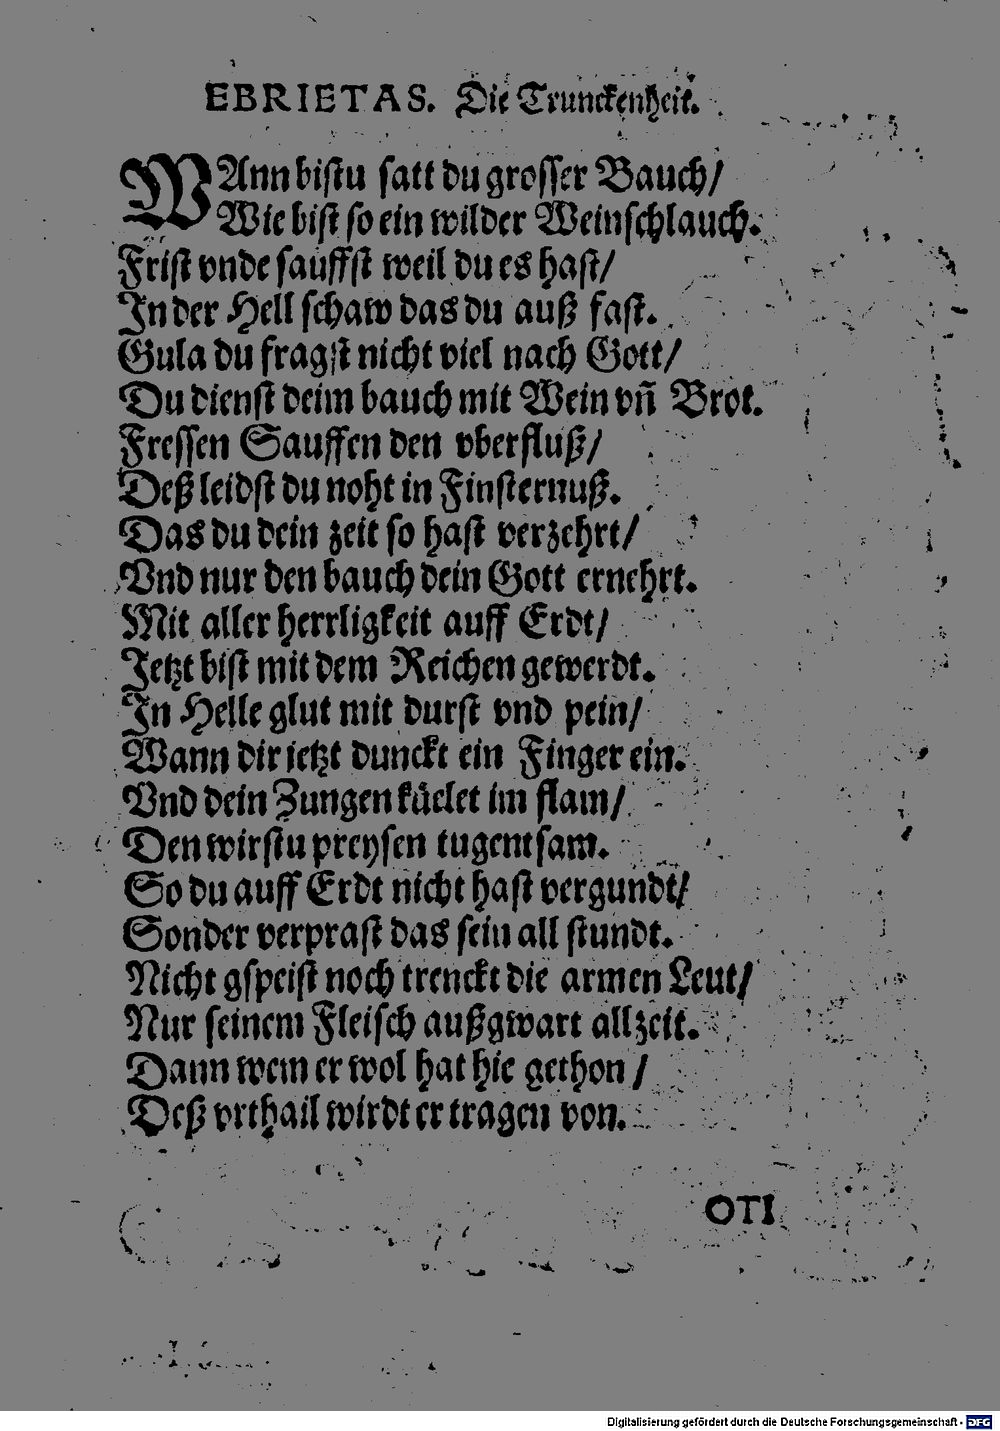 EBRIETAS. Die Trunckenheit.
WAnn bistu satt du grosser Bauch/
Wie bist so ein wilder Weinschlauch.
Frist vnde sauffst weil du es hast/
In der Hell schaw das du auß fast.
Gula du fragst nicht viel nach Gott/
Du dienst deim bauch mit Wein vñ Brot.
Fressen Sauffen den vberfluß/
Deß leidst du noht in Finsternuß.
Das du dein zeit so hast verzehrt/
Vnd nur den bauch dein Gott ernehrt.
Mit aller herrligkeit auff Erdt/
Jetzt bist mit dem Reichen gewerdt.
In Helle glut mit durst vnd pein/
Wann dir jetzt dunckt ein Finger ein.
Vnd dein Zungen küelet im flam/
Den wirstu preysen tugentsam.
So du auff Erdt nicht hast vergundt/
Sonder verprast das sein all stundt.
Nicht gspeist noch trenckt die armen Leut/
Nur seinem Fleisch außgwart allzeit.
Dann wem er wol hat hie gethon/
Deß vrthail wirdt er tragen von.
OTI
Digitalisierung gefördert durch die Deutsche Forschungsgemeinschaft - DFG